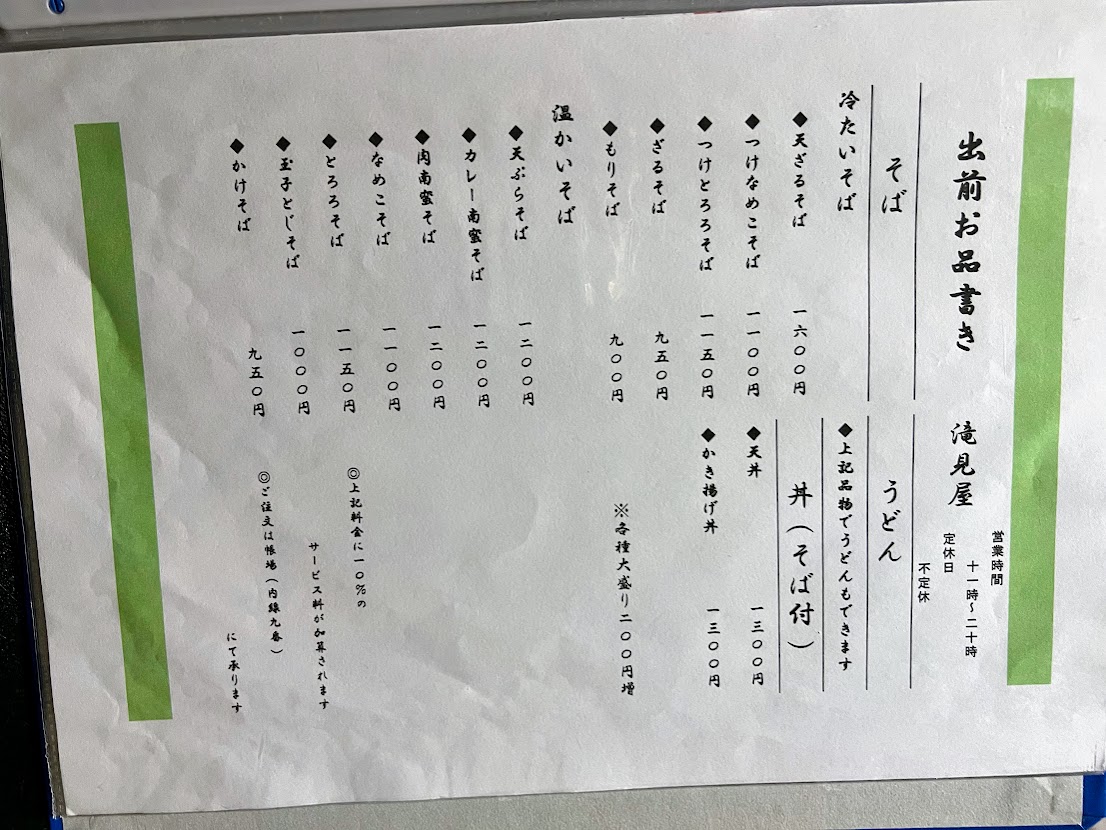 出前お品書き 滝見屋
営業時間
十一時～二十時
定休日
不定休
そば
冷たいそば
◆天ざるそば 一六〇〇円
◆つけなめこそば 一一〇〇円
◆つけとろろそば 一一五〇円
◆ざるそば 九五〇円
◆もりそば 九〇〇円
温かいそば
◆天ぷらそば 一二〇〇円
◆カレー南蜜そば 一二〇〇円
◆肉南蜜そば 一二〇〇円
◆なめこそば 一一〇〇円
◆とろろそば 一一五〇円
◆玉子とじそば 一〇〇〇円
◆かけそば 九五〇円
うどん
◆上記品物でうどんもできます
丼（そば付）
◆天丼 一三〇〇円
◆かき揚げ丼 一三〇〇円
※各種大盛り二〇〇円増
◎上記料金に一〇％の
サービス料が加算されます
◎ご注文は帳場（内線九番）
にて承ります